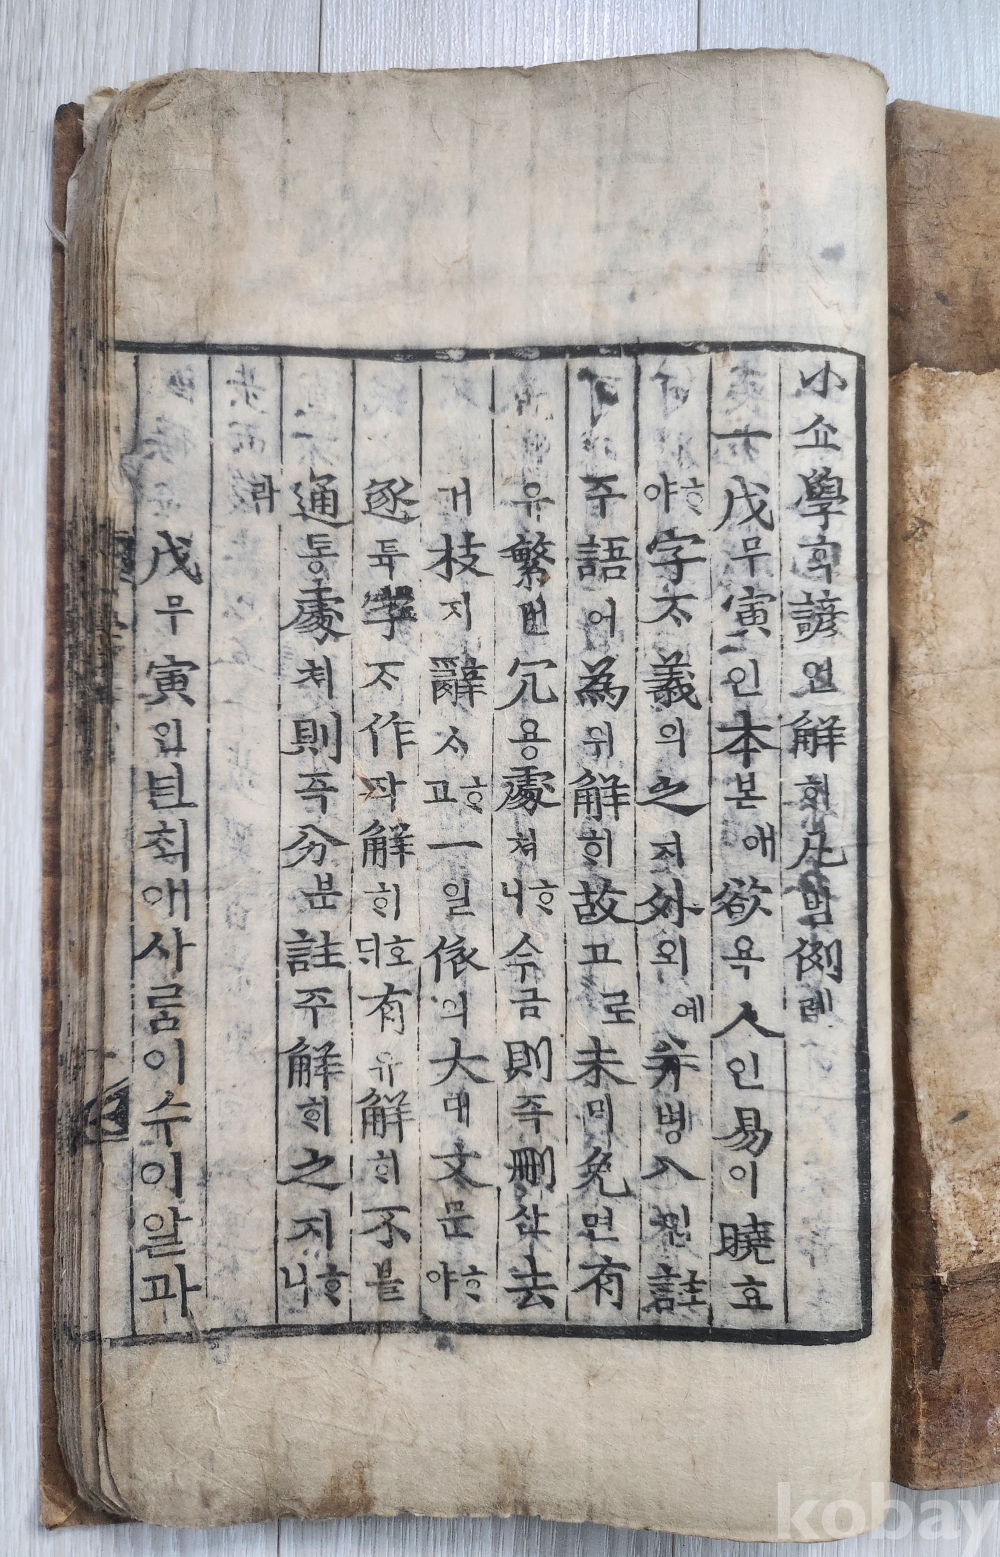 小쇼學ᄒᆞᆨ諺언解ᄒᆡ凡범例례
一戊무寅인本본애欲욕人인易이曉효
ᄒᆞ야字ᄌᆞ義의之지外외예幷병入입註
주語어爲위解ᄒᆡ故고로未미免면有
유繁번冗용處쳐ᄒᆞ니今금則즉刪산去
거枝지辭ᄉᆞᄒᆞ고一일依의大대文문ᄒᆞ야
逐튝字ᄌᆞ作작解ᄒᆡ호ᄃᆡ有유解ᄒᆡ不블
通통處쳐則즉分분註주解ᄒᆡ之지ᄒᆞ니
라
戊무寅인년ᄎᆡᆨ애사ᄅᆞᆷ이수이알과
kobay